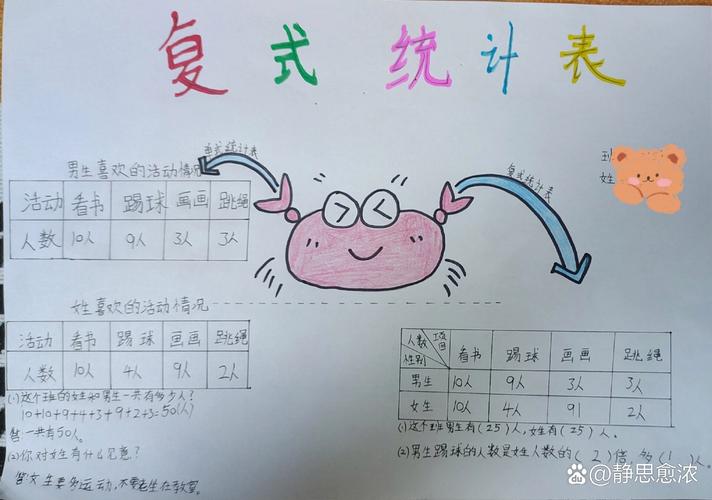 复式统计表
单式统计表
复式统计表
男生喜欢的活动情况
活动 看书 踢球 画画 跳绳
人数 10人 9人 3人 3人
姓喜欢的活动情况
活动 看书 踢球 画画 跳绳
人数 10人 4人 9人 2人
(1)这个班的女姓和男生一共有多少人?
10+10+9+4+3+9+2+3=50(人)
答一共有50人。
(2)你对女生有什么见意?
人数 项目
性别 看书 踢球 画画 跳绳
男生 10人 9人 3人 3人
女生 10人 4人 91 2人
(1)这个班男生有(25)人,女生有(25)人。
(2)男生踢球的人数是女生人数的(2)倍多(1)人。
姓
@静思愈浓